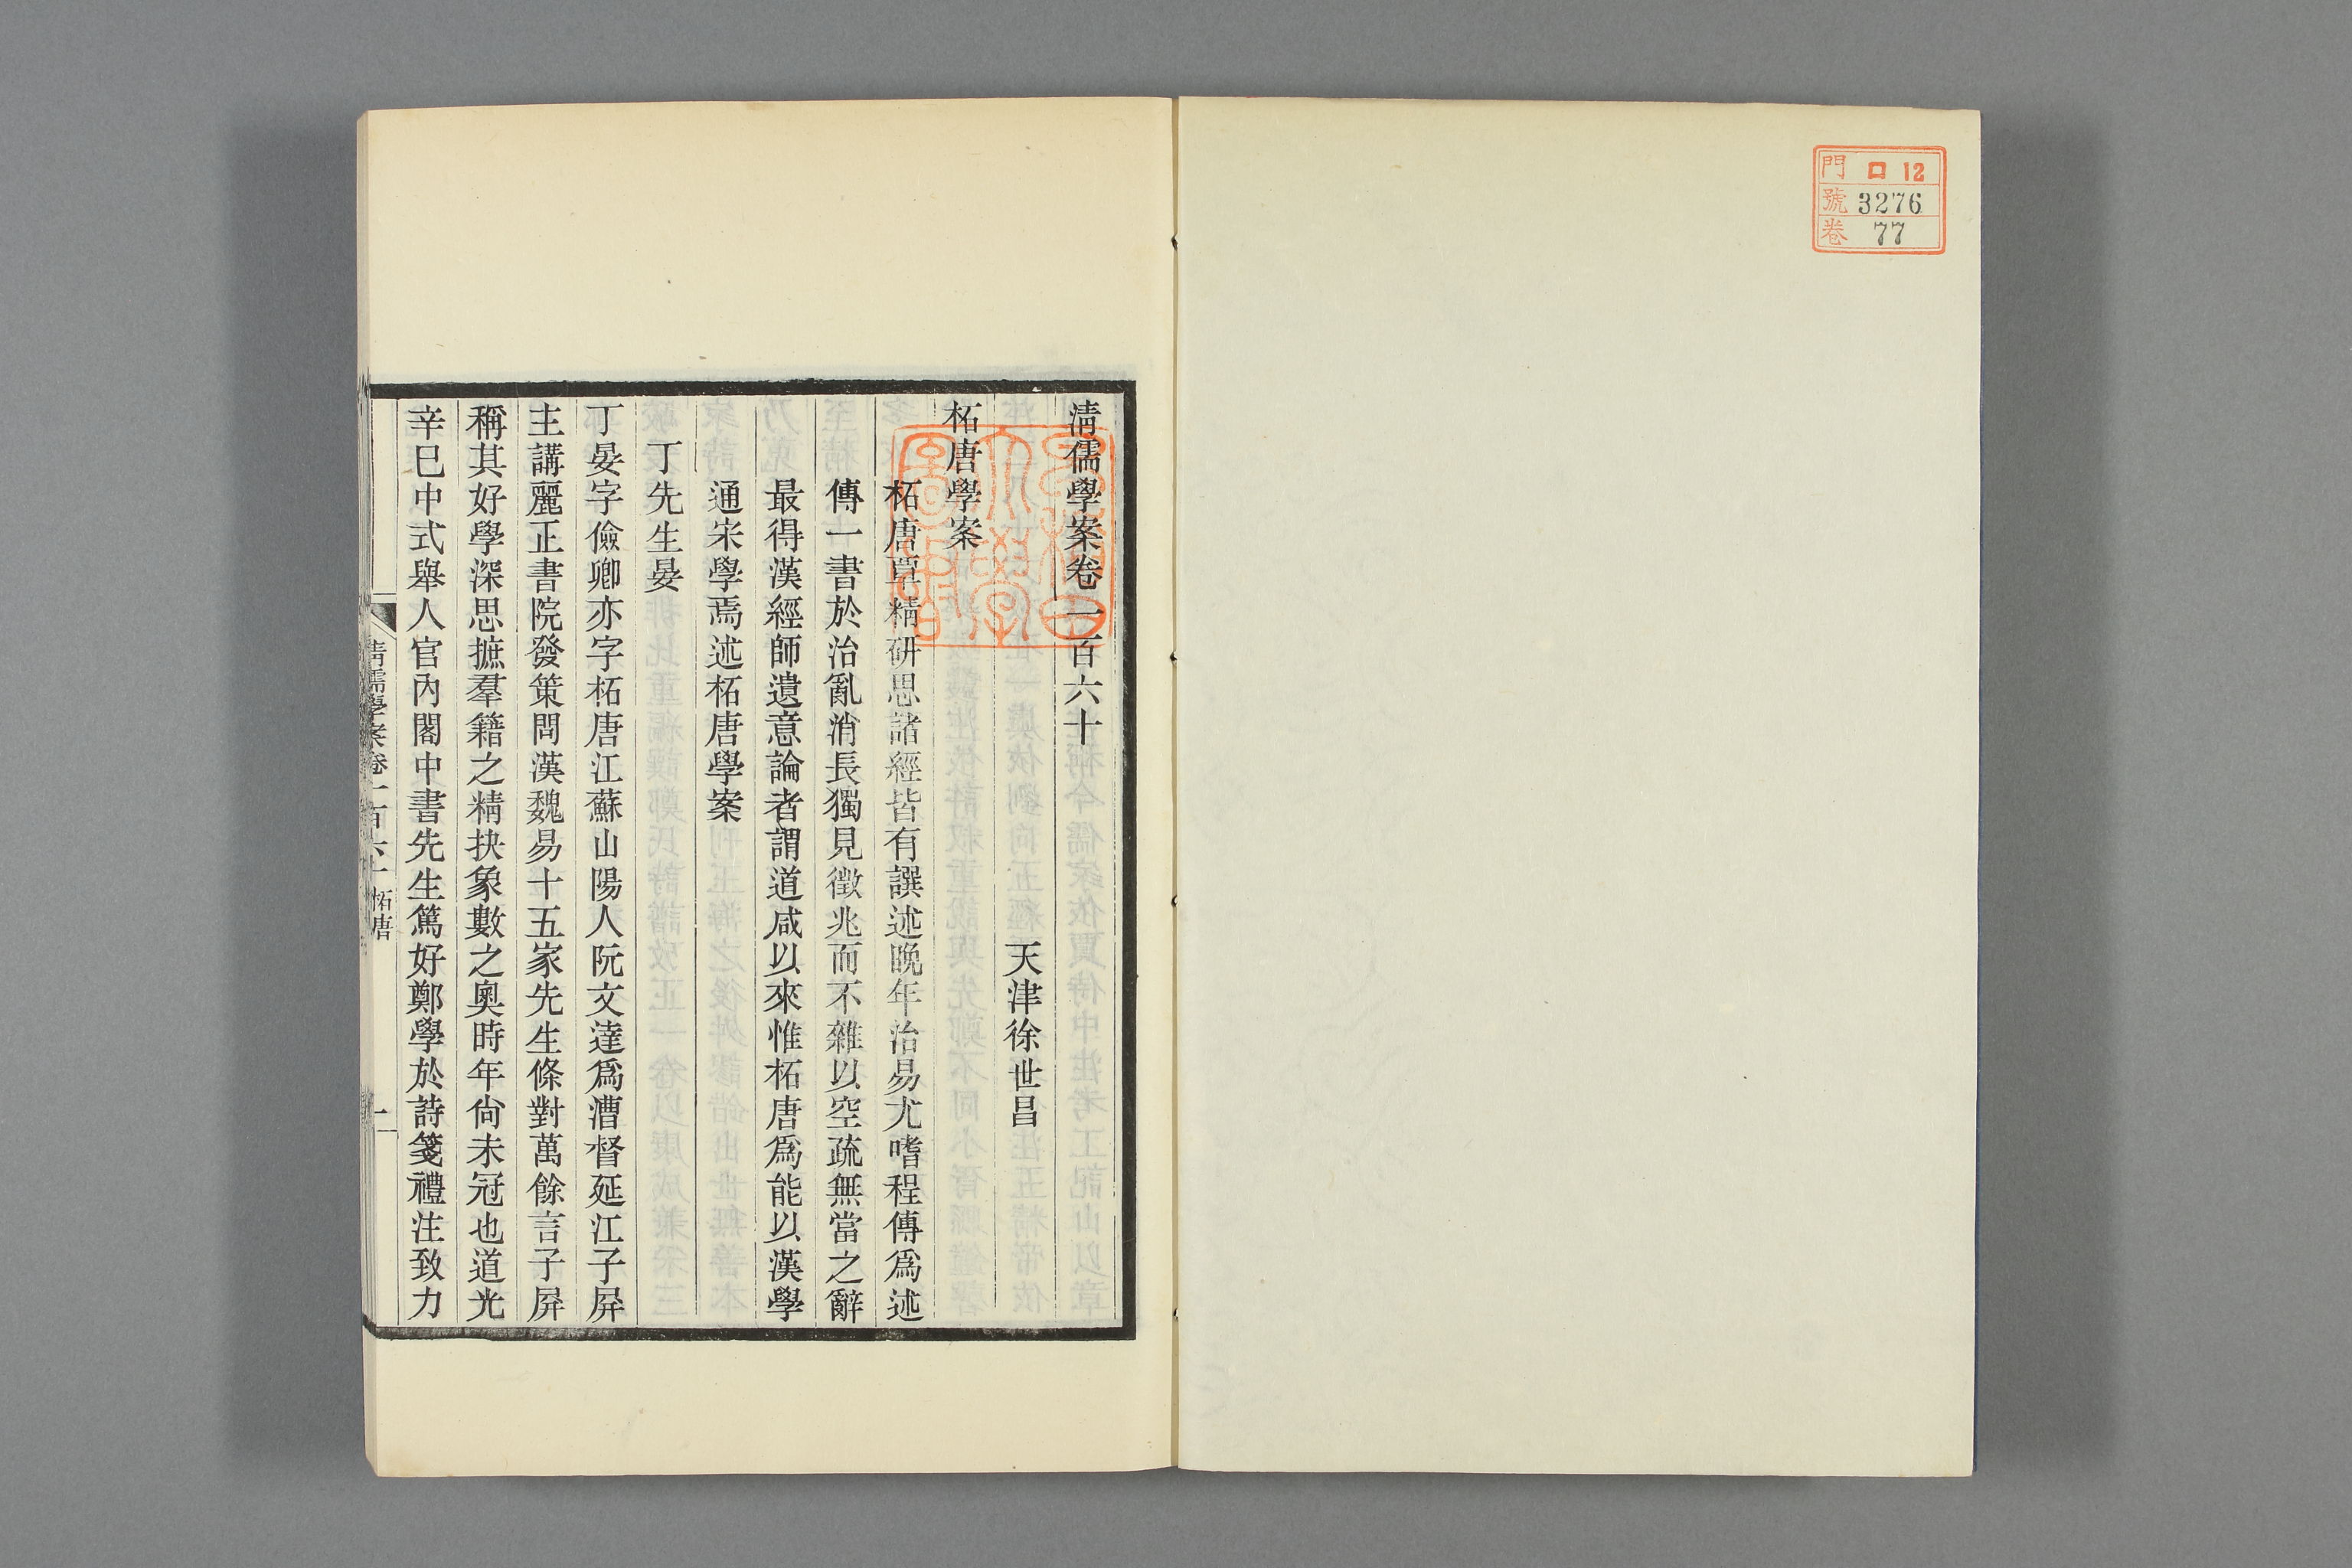 門 ロ 12
號 3276
卷 77
淸儒學案卷一百六十
天津徐世昌
柘唐學案
柘唐覃精硏思諸經皆有譔述晚年治易尤嗜程傳爲述
傳一書於治亂消長獨見徵兆而不雜以空疏無當之辭
最得漢經師遺意論者謂道咸以來惟柘唐爲能以漢學
通宋學焉述柘唐學案
丁先生晏
丁晏字儉卿亦字柘唐江蘇山陽人阮文達爲漕督延江子屛
主講麗正書院發策問漢魏易十五家先生條對萬餘言子屛
稱其好學深思摭羣籍之精抉象數之奧時年尙未冠也道光
辛巳中式舉人官內閣中書先生篤好鄭學於詩箋禮注致力
淸儒學案卷一百六十 柘唐 一